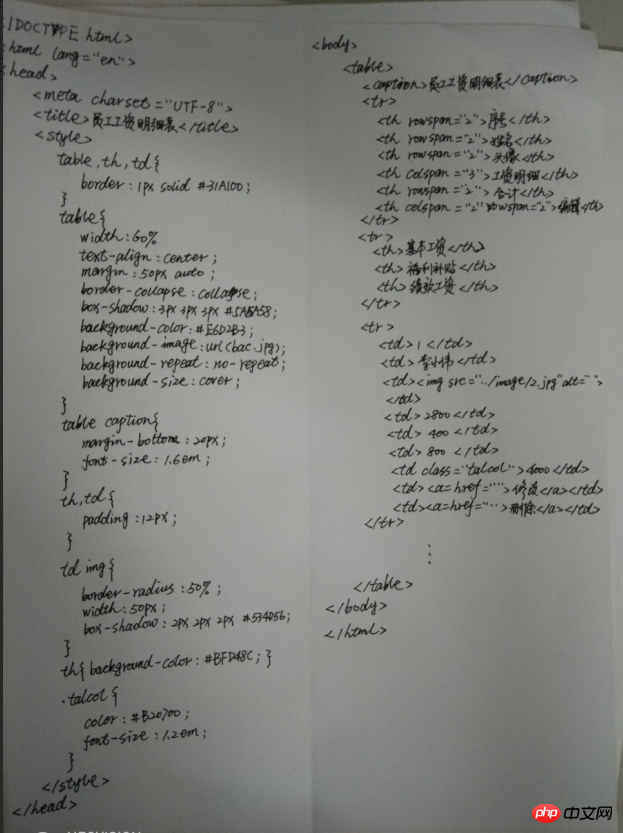 <!DOCTYPE html>
<html lang="en">
<head>
<meta charset="UTF-8">
<title>员工工资明细表</title>
<style>
table,th,td{
border:1px solid #31A100;
}
table{
width:60%
text-align:center;
margin:50px auto;
border-collapse:collapse;
box-shadow:3px 3px 3px #5A5A58;
background-color:#E6D2B3;
background-image:url(bac.jpg);
background-repeat:no-repeat;
background-size:cover;
}
table caption{
margin-bottom:20px;
font-size:1.6em;
}
th,td{
padding:12px;
}
td img{
border-radius:50%;
width:50px;
box-shadow:2px 2px 2px #534D56;
}
th{background-color:#BFD48C;}
.talcol{
color:#B20700;
font-size:1.2em;
}
</style>
</head>
<body>
<table>
<caption>员工工资明细表</caption>
<tr>
<th rowspan="2">序号</th>
<th rowspan="2">姓名</th>
<th rowspan="2">头像</th>
<th colspan="3">工资明细</th>
<th rowspan="2">合计</th>
<th colspan="2" rowspan="2">编辑</th>
</tr>
<tr>
<th>基本工资</th>
<th>福利补贴</th>
<th>绩效工资</th>
</tr>
<tr>
<td>1</td>
<td>李小伟</td>
<td><img src="../image/2.jpg"alt="">
</td>
<td>2800</td>
<td>400</td>
<td>800</td>
<td class="talcol">4000</td>
<td><a=href="">修改</a></td>
<td><a=href="">删除</a></td>
</tr>
⋮
</table>
</body>
</html>
php中文网